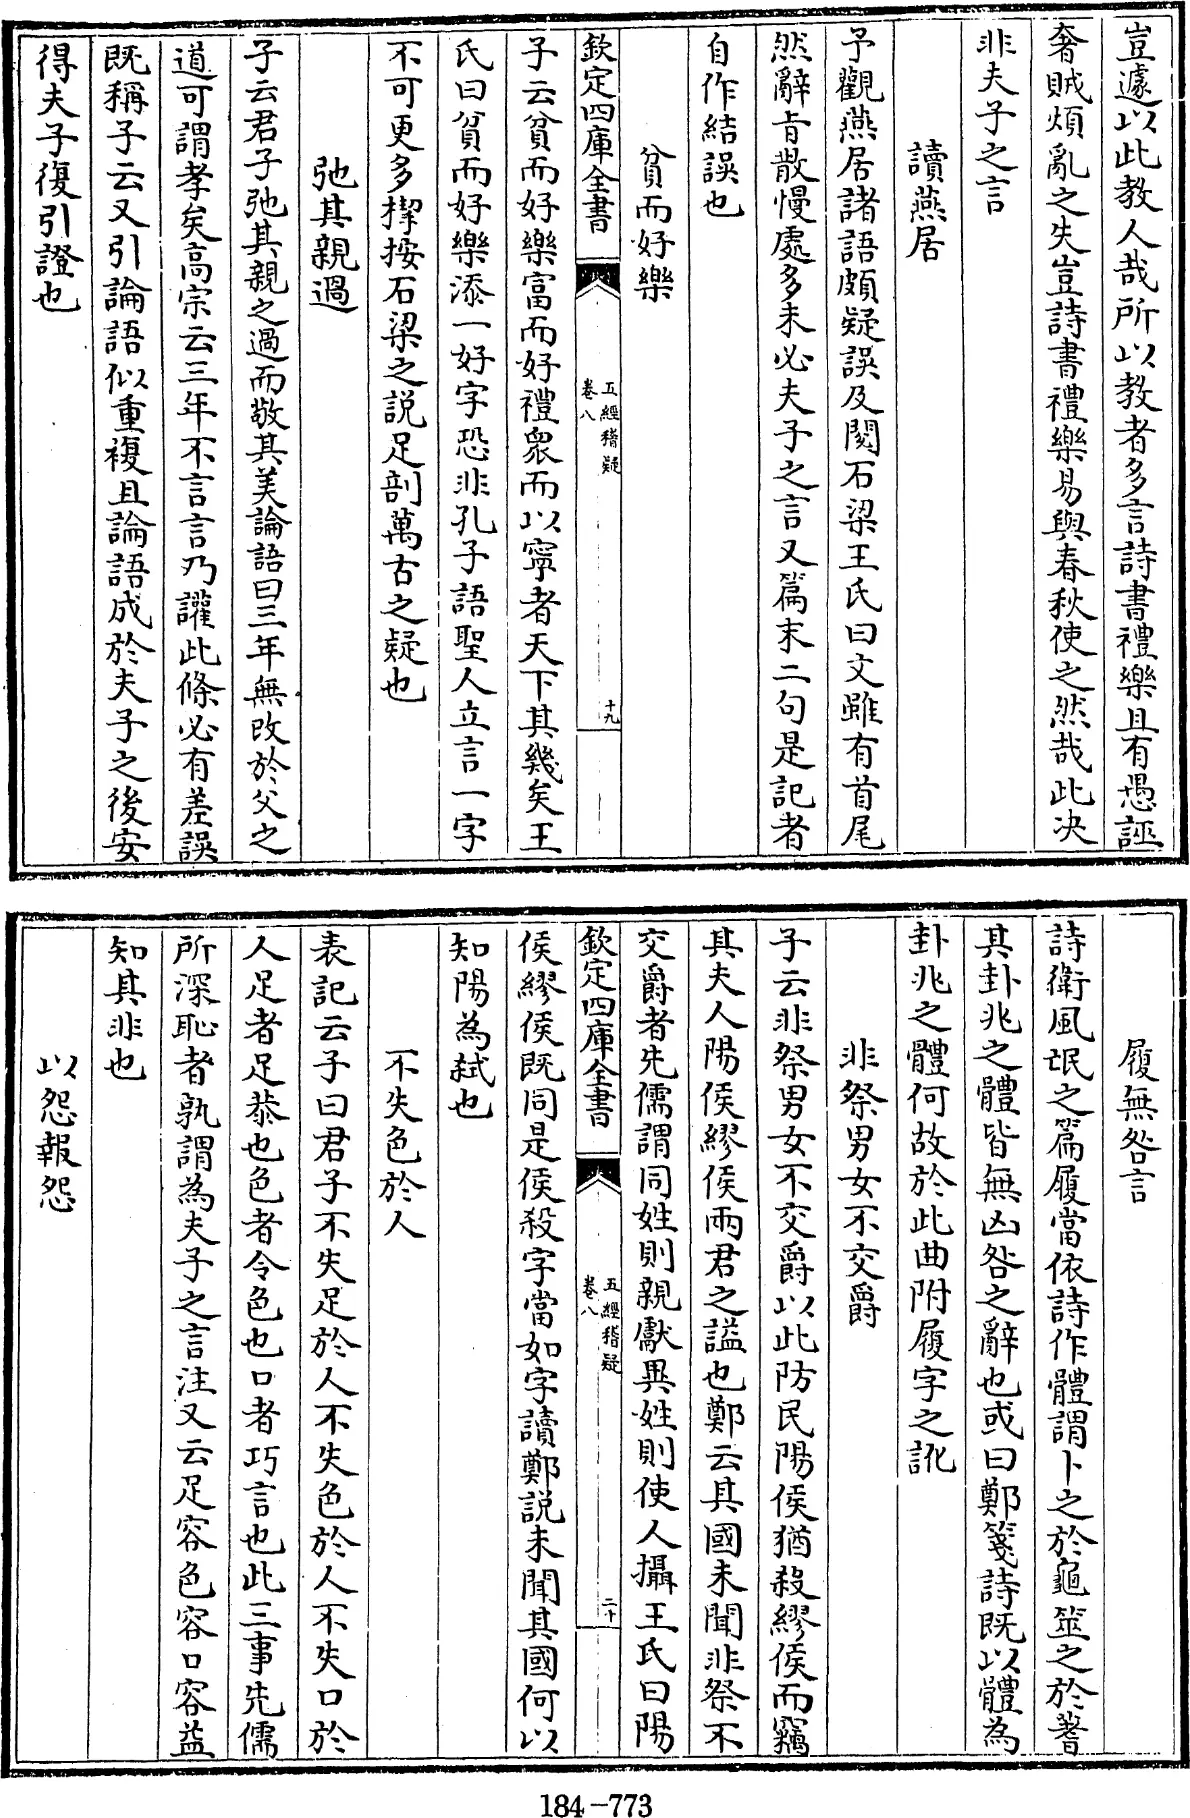 豈遽以此教人哉所以教者多言詩書禮樂且有愚誣
奢賊煩亂之失豈詩書禮樂易與春秋使之然哉此决
非夫子之言
讀燕居
予觀燕居諸語頗疑誤及閱石梁王氏曰文雖有首尾
然辭旨散慢處多未必夫子之言又篇末二句是記者
自作結誤也
貧而好樂
欽定四庫全書
五經稽疑
卷八
十九
子云貧而好樂富而好禮衆而以寧者天下其幾矣王
氏曰貧而好樂添一好字恐非孔子語聖人立言一字
不可更多擇按石梁之説足剖萬古之疑也
弛其親過
子云君子弛其親之過而敬其美論語曰三年無改於父之
道可謂孝矣高宗云三年不言言乃讙此條必有差誤
既稱子云又引論語似重複且論語成於夫子之後安
得夫子復引證也
履無咎言
詩衛風氓之篇履當依詩作體謂卜之於龜筮之於蓍
其卦兆之體皆無凶咎之辭也或曰鄭箋詩既以體為
卦兆之體何故於此曲附履字之訛
非祭男女不交爵
子云非祭男女不交爵以此防民陽侯猶殺繆侯而竊
其夫人陽侯繆侯兩君之謚也鄭云其國未聞非祭不
交爵者先儒謂同姓則親獻異姓則使人攝王氏曰陽
欽定四庫全書
五經稽疑
卷八
二十
侯繆侯既同是侯殺字當如字讀鄭説未聞其國何以
知陽為弑也
不失色於人
表記云子曰君子不失足於人不失色於人不失口於
人足者足恭也色者令色也口者巧言也此三事先儒
所深恥者孰謂為夫子之言注又云足容色容口容益
知其非也
以怨報怨
184-773